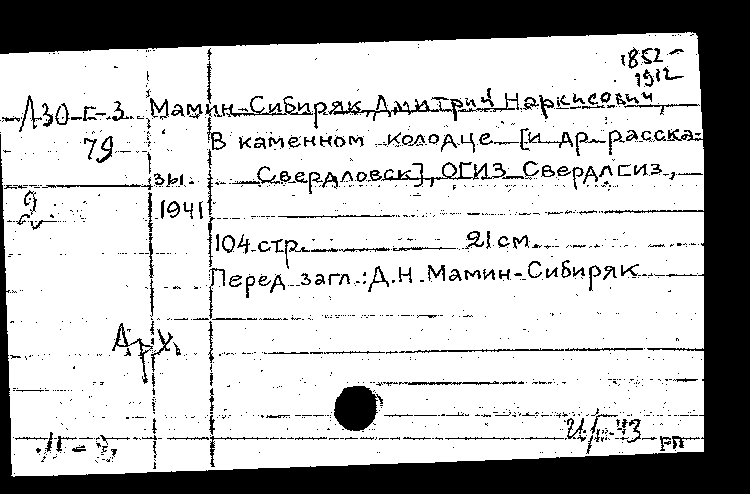 1852-
1912
Л30-Г-3 Мамин-Сибиряк, Дмитрий Наркисович,
79 В каменном колодце [и др. расска=
зы. Свердловск], ОГИЗ Свердлгиз,
2 1941
104 стр. 21 см.
Перед загл.: Д.Н. Мамин-Сибиряк
Арх.
43
РП